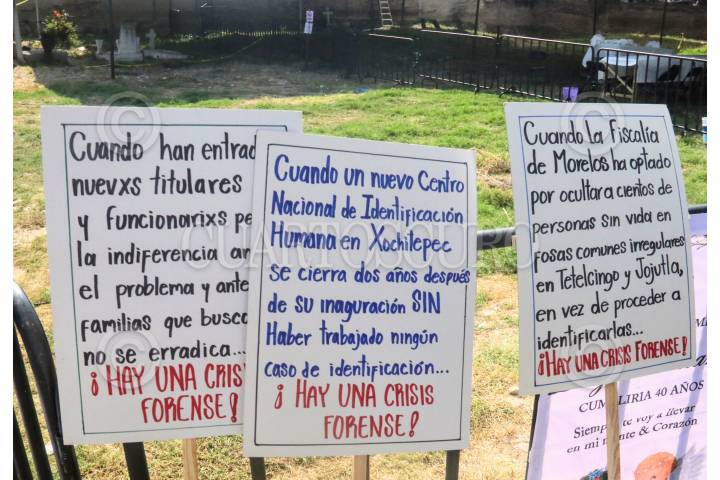 Cuando han entrad
nuevxs titulares
y funcionarixs pe
la indiferencia an
el problema y ante
familias que busca
no se erradica...
¡HAY UNA CRIS
FORENSE!
Cuando un nuevo Centro
Nacional de Identificación
Humana en Xochitepec
se cierra dos años después
de su inaguración SIN
Haber trabajado ningún
caso de identificación...
¡HAY UNA CRISIS
FORENSE!
Cuando La Fiscalía
de Morelos ha optado
por ocultar a cientos de
personas sin vida en
fosas comunes irregulares
en Tetelcingo y Jojutla,
en vez de proceder a
identificarlas...
¡HAY UNA CRISIS FORENSE!
CUMPLIRIA 40 AÑOS
Siempre te voy a llevar
en mi mente & Corazón
CUARTOSCURO